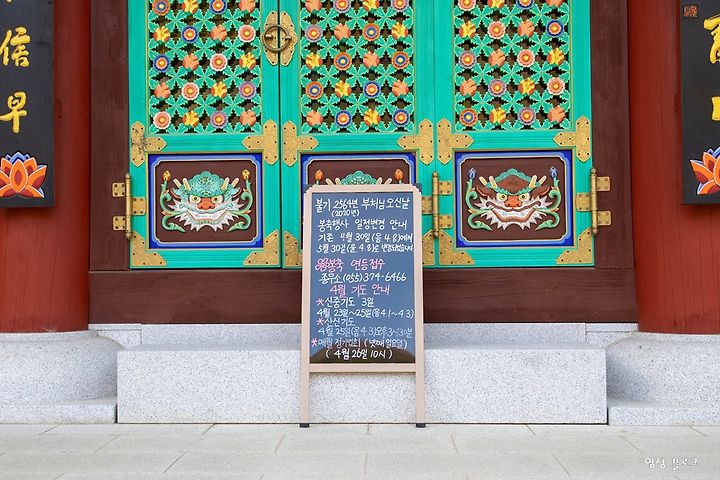 信
早
불기 2564년 부처님오신날
(2020년)
봉축행사 일정변경 안내
기존 4월 30일(음 4.8)에서
5월 30일(음 4.8)로 변경되었습니다
봉축 연등접수
종무소(055)374-6466
4월 기도 안내
*신중기도 3일
4月 23일~25일(음4.1~4.3)
*산신기도
4月 25일(음4.3)오후3시30분
*매월 정기법회 (넷째 일요일)
(4月 26일 10시)